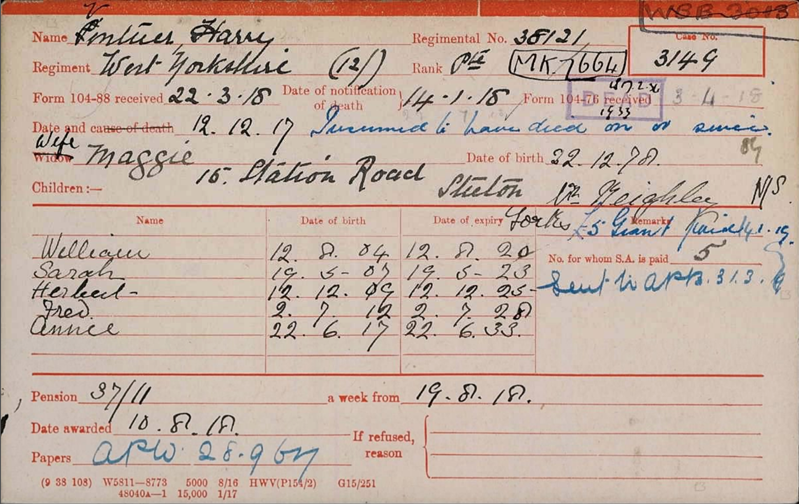 WSB 3085
Name Harry Regimental No. 38121 Case No. 3149
Regiment West Yorkshire (12) Rank Pte MK7664
Form 104-88 received 22.3.18 Date of notification of death 14.1.18 Form 104-76 received 3-4-18
DEAD 1933
Date and cause of death 12.12.17 Presumed to have died on or since.
Wife
Widow Maggie Date of birth 22.12.78.
15. Station Road Steeton Keighley N/S.
Children:— Yorks
Name Date of birth Date of expiry Remarks
£5 Grant Paid 14.1.19
William 12.8.04 12.8.20
No. for whom S.A. is paid 5
Sarah 19.5-07 19.5-23
Herbert 12.12.09 12.12.25-
Sent to APB. 31.3.
Fred. 2.7.12 2.7.28
Annie 22.6.17 22.6.33.
Pension 37/11 a week from 19.8.18.
Date awarded 10.8.18.
If refused, reason
Papers APW 28967
(9 38 108) W5811—8773 5000 8/16 HWV(P154/2) G15/251
48040A—1 15,000 1/17